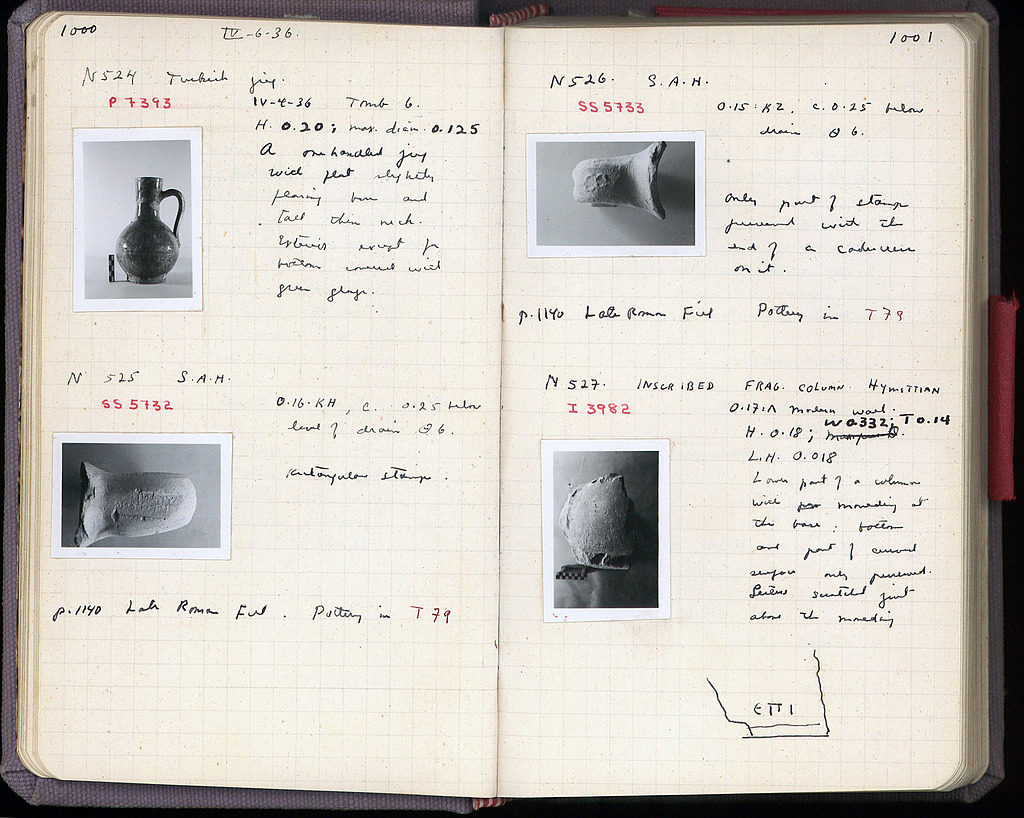 1000
IV-6-36.
N 524 Turkish jug.
P 7393
IV-4-36 Tomb 6.
H. 0.20; max. diam. 0.125
A one handled jug
with flat slightly
flaring base and
tall thin neck.
Exterior except for
bottom covered with
green glaze.
N 525 S.A.H.
SS 5732
0.16·KH, c. 0.25 below
level of drain @ 6.
rectangular stamp.
p. 1140 Late Roman Fill. Pottery in T 79
1001.
N 526. S.A.H.
SS 5733
0.15·KZ, c. 0.25 below
drain @ 6.
only part of stamp
preserved with the
end of a caduceus
on it.
p. 1140 Late Roman Fill Pottery in T 79
N 527. INSCRIBED FRAG. COLUMN HYMITTIAN
I 3982
0.17:Λ modern wall.
W 0.332; T 0.14
H. 0.18;
L.H. 0.018
Lower part of a column
with moulding at
the base: bottom
and part of curved
surface only preserved.
Letters just
above the moulding
ЄΠΙ